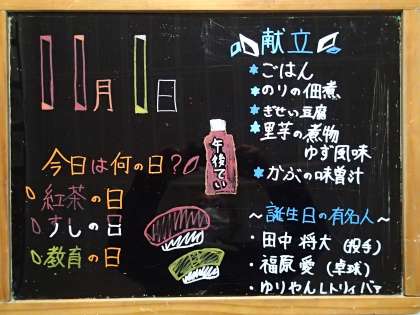 11月1日
今日は何の日?
紅茶の日
すしの日
教育の日
午後てぃ
献立
ごはん
のりの佃煮
ぎせい豆腐
里芋の煮物
ゆず風味
かぶの味噌汁
～誕生日の有名人～
・田中 将大 (投手)
・福原 愛 (卓球)
・ゆりやんレトリィバァ